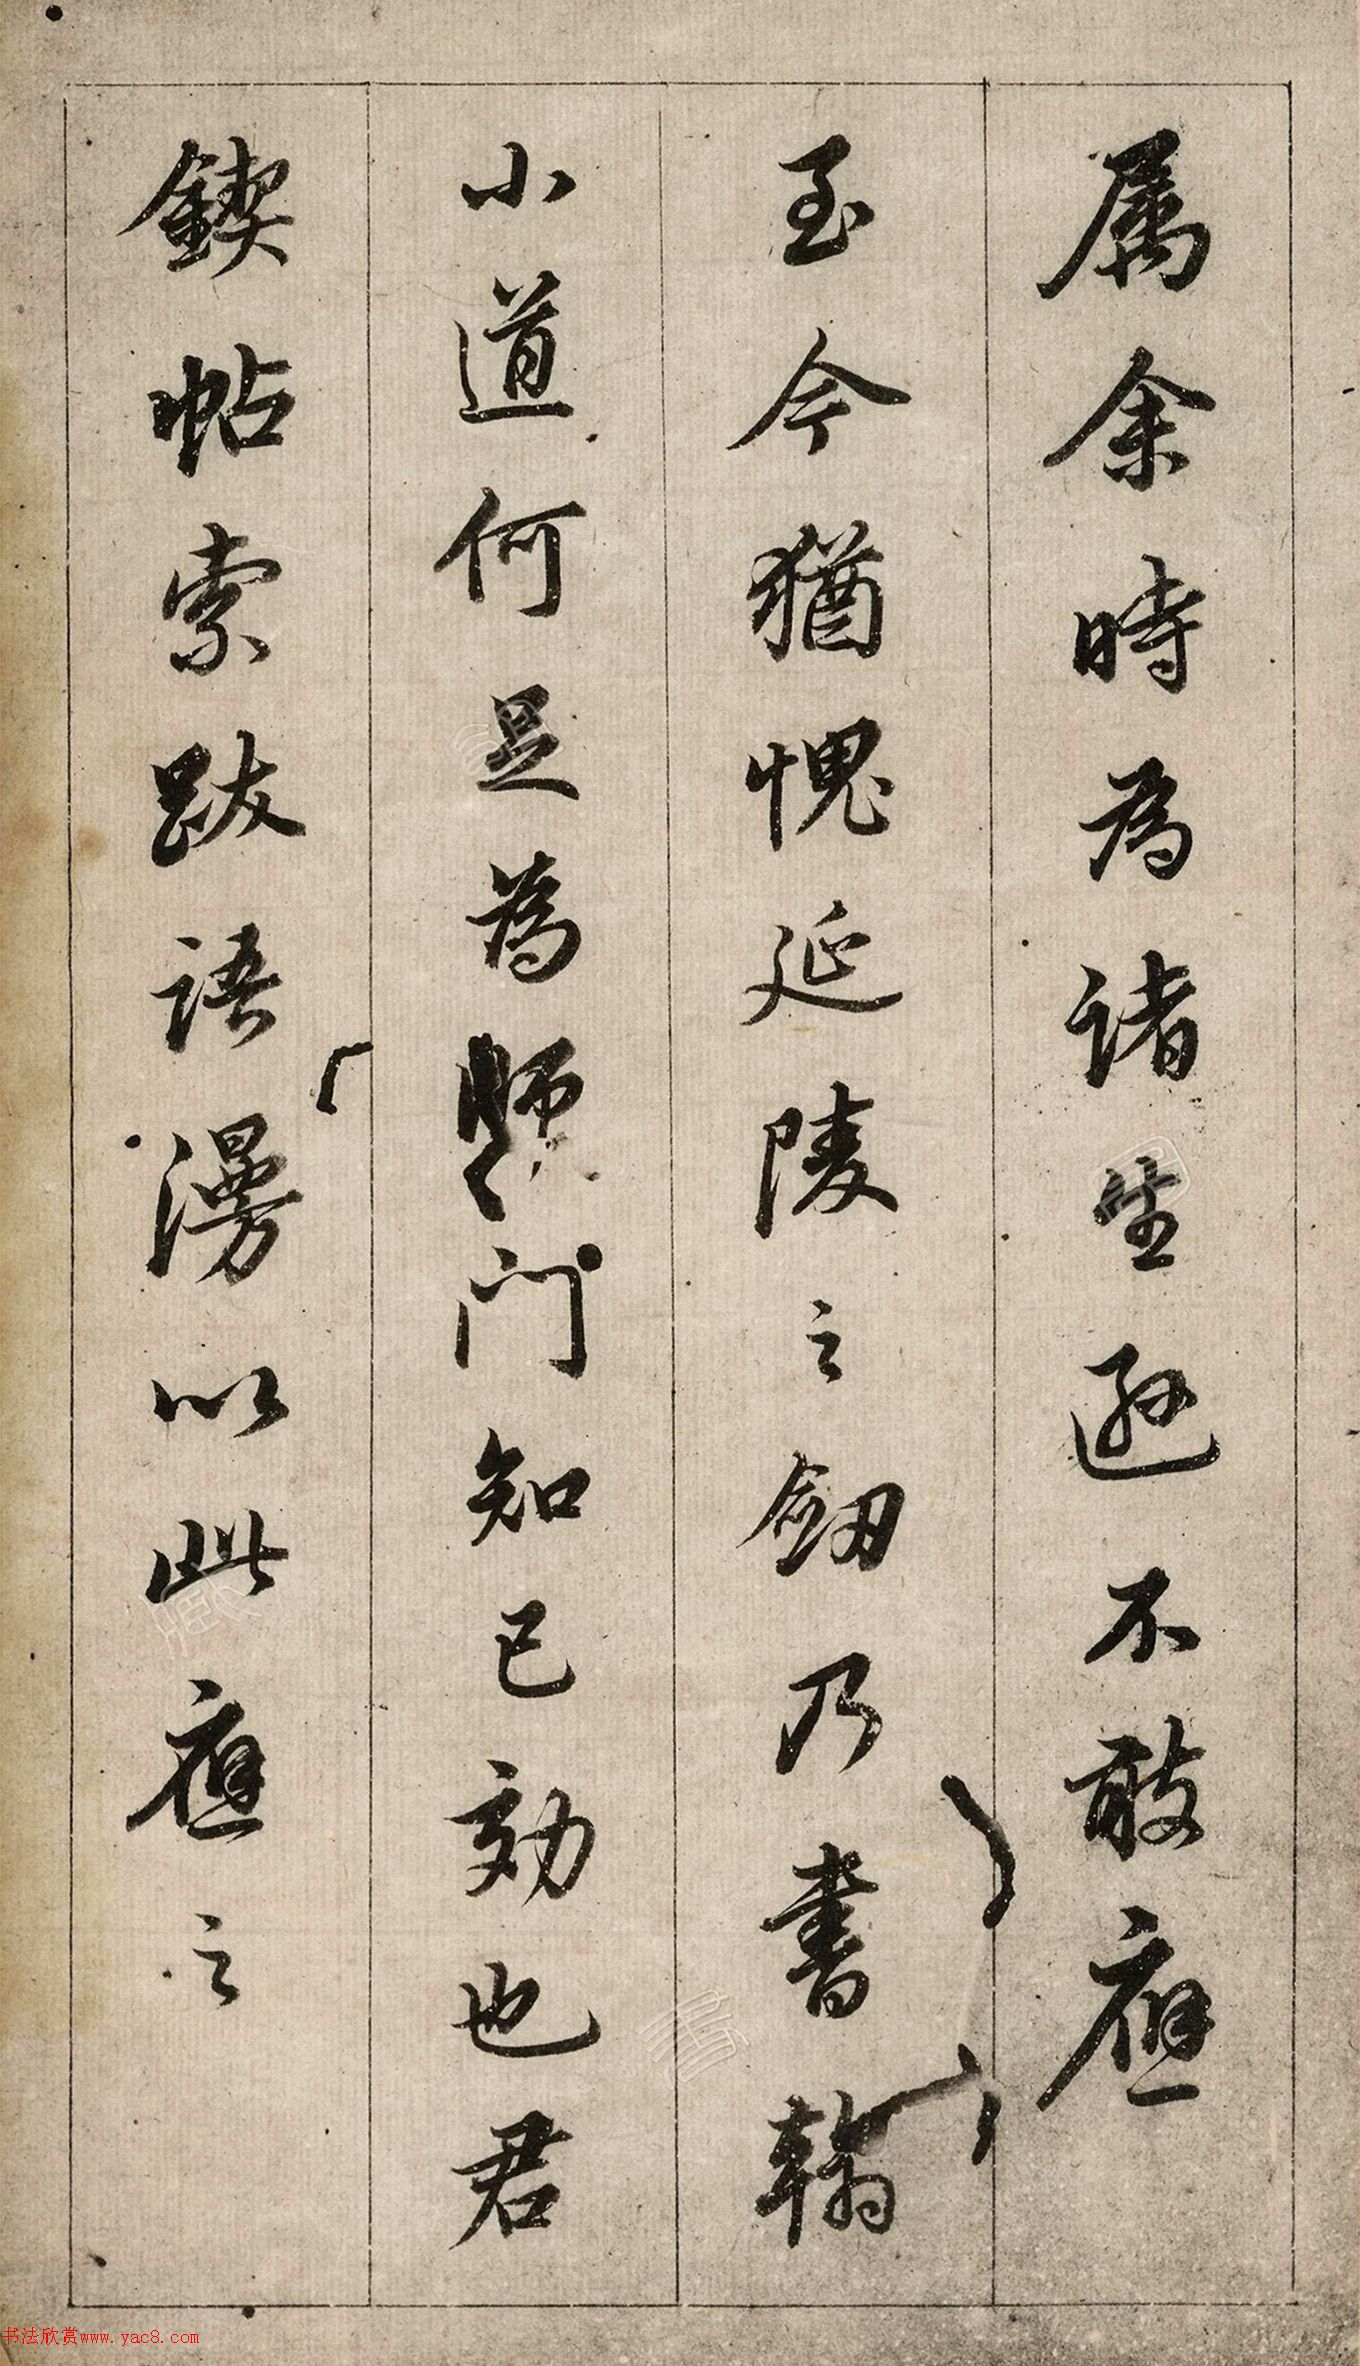 属余時為諸生遜不敢應
至今猶愧延陵之劒乃書翰
小道何足為師門知己効也君
鍥帖索跋語漫以此應之
书法欣赏www.yac8.com